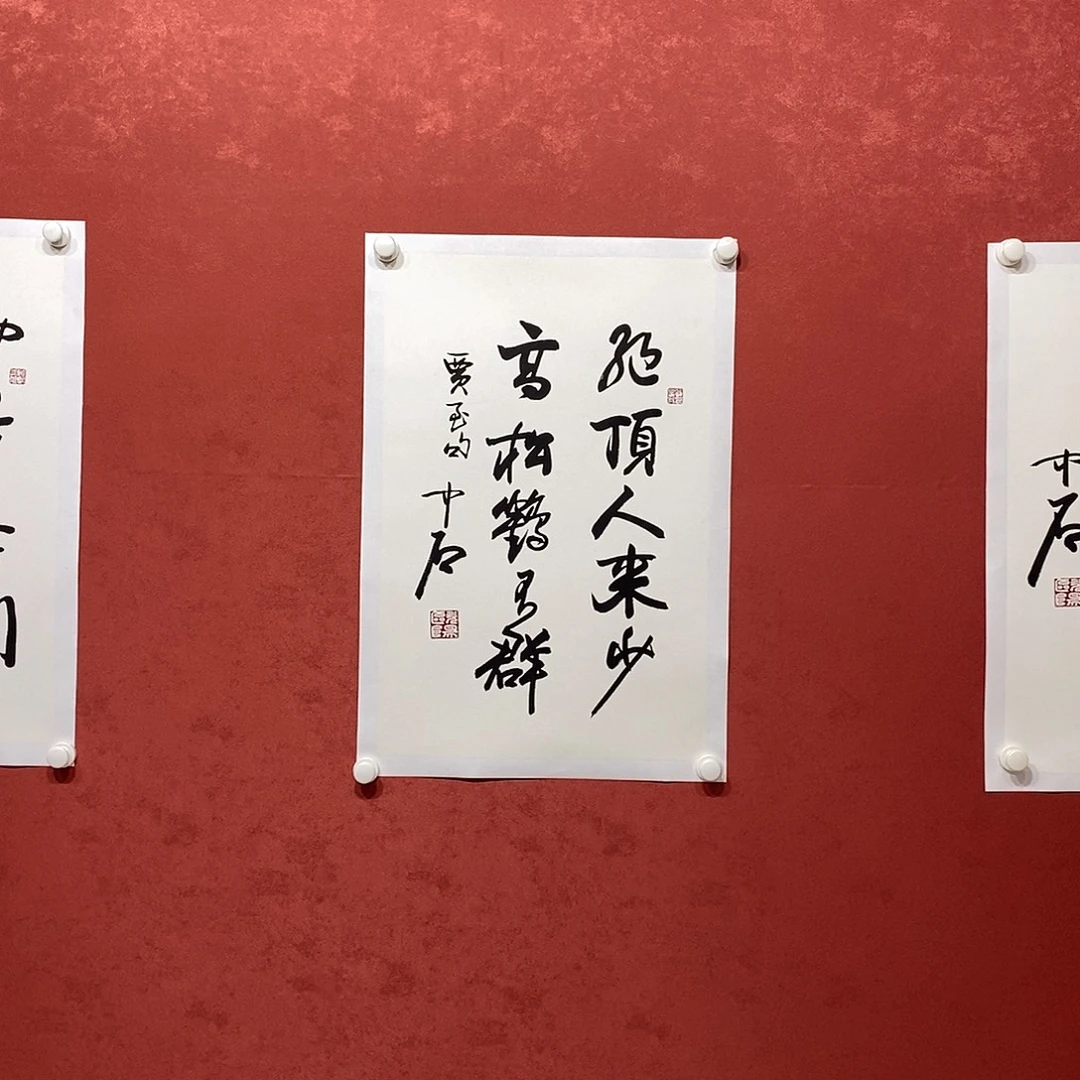 絕頂人来少
高松鶴不群
賈島句
中石
中石